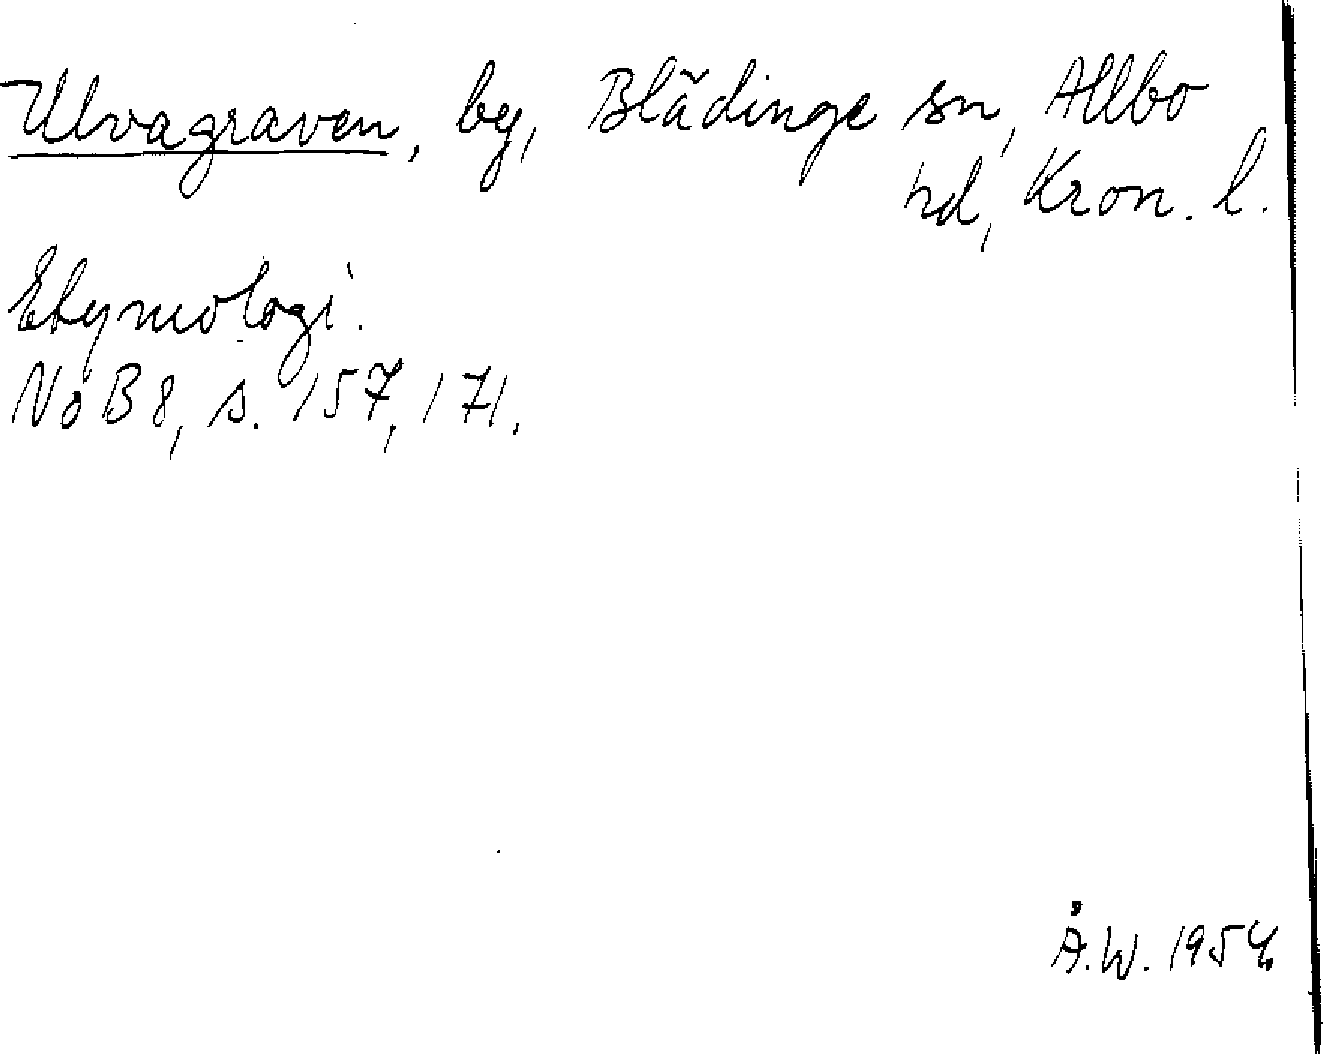 Ulvagraven, by, Blädinge sn, Allbo
hd, Kron. l.
Etymologi.
NoB 8, s. 157, 171.
Å.W. 1954.